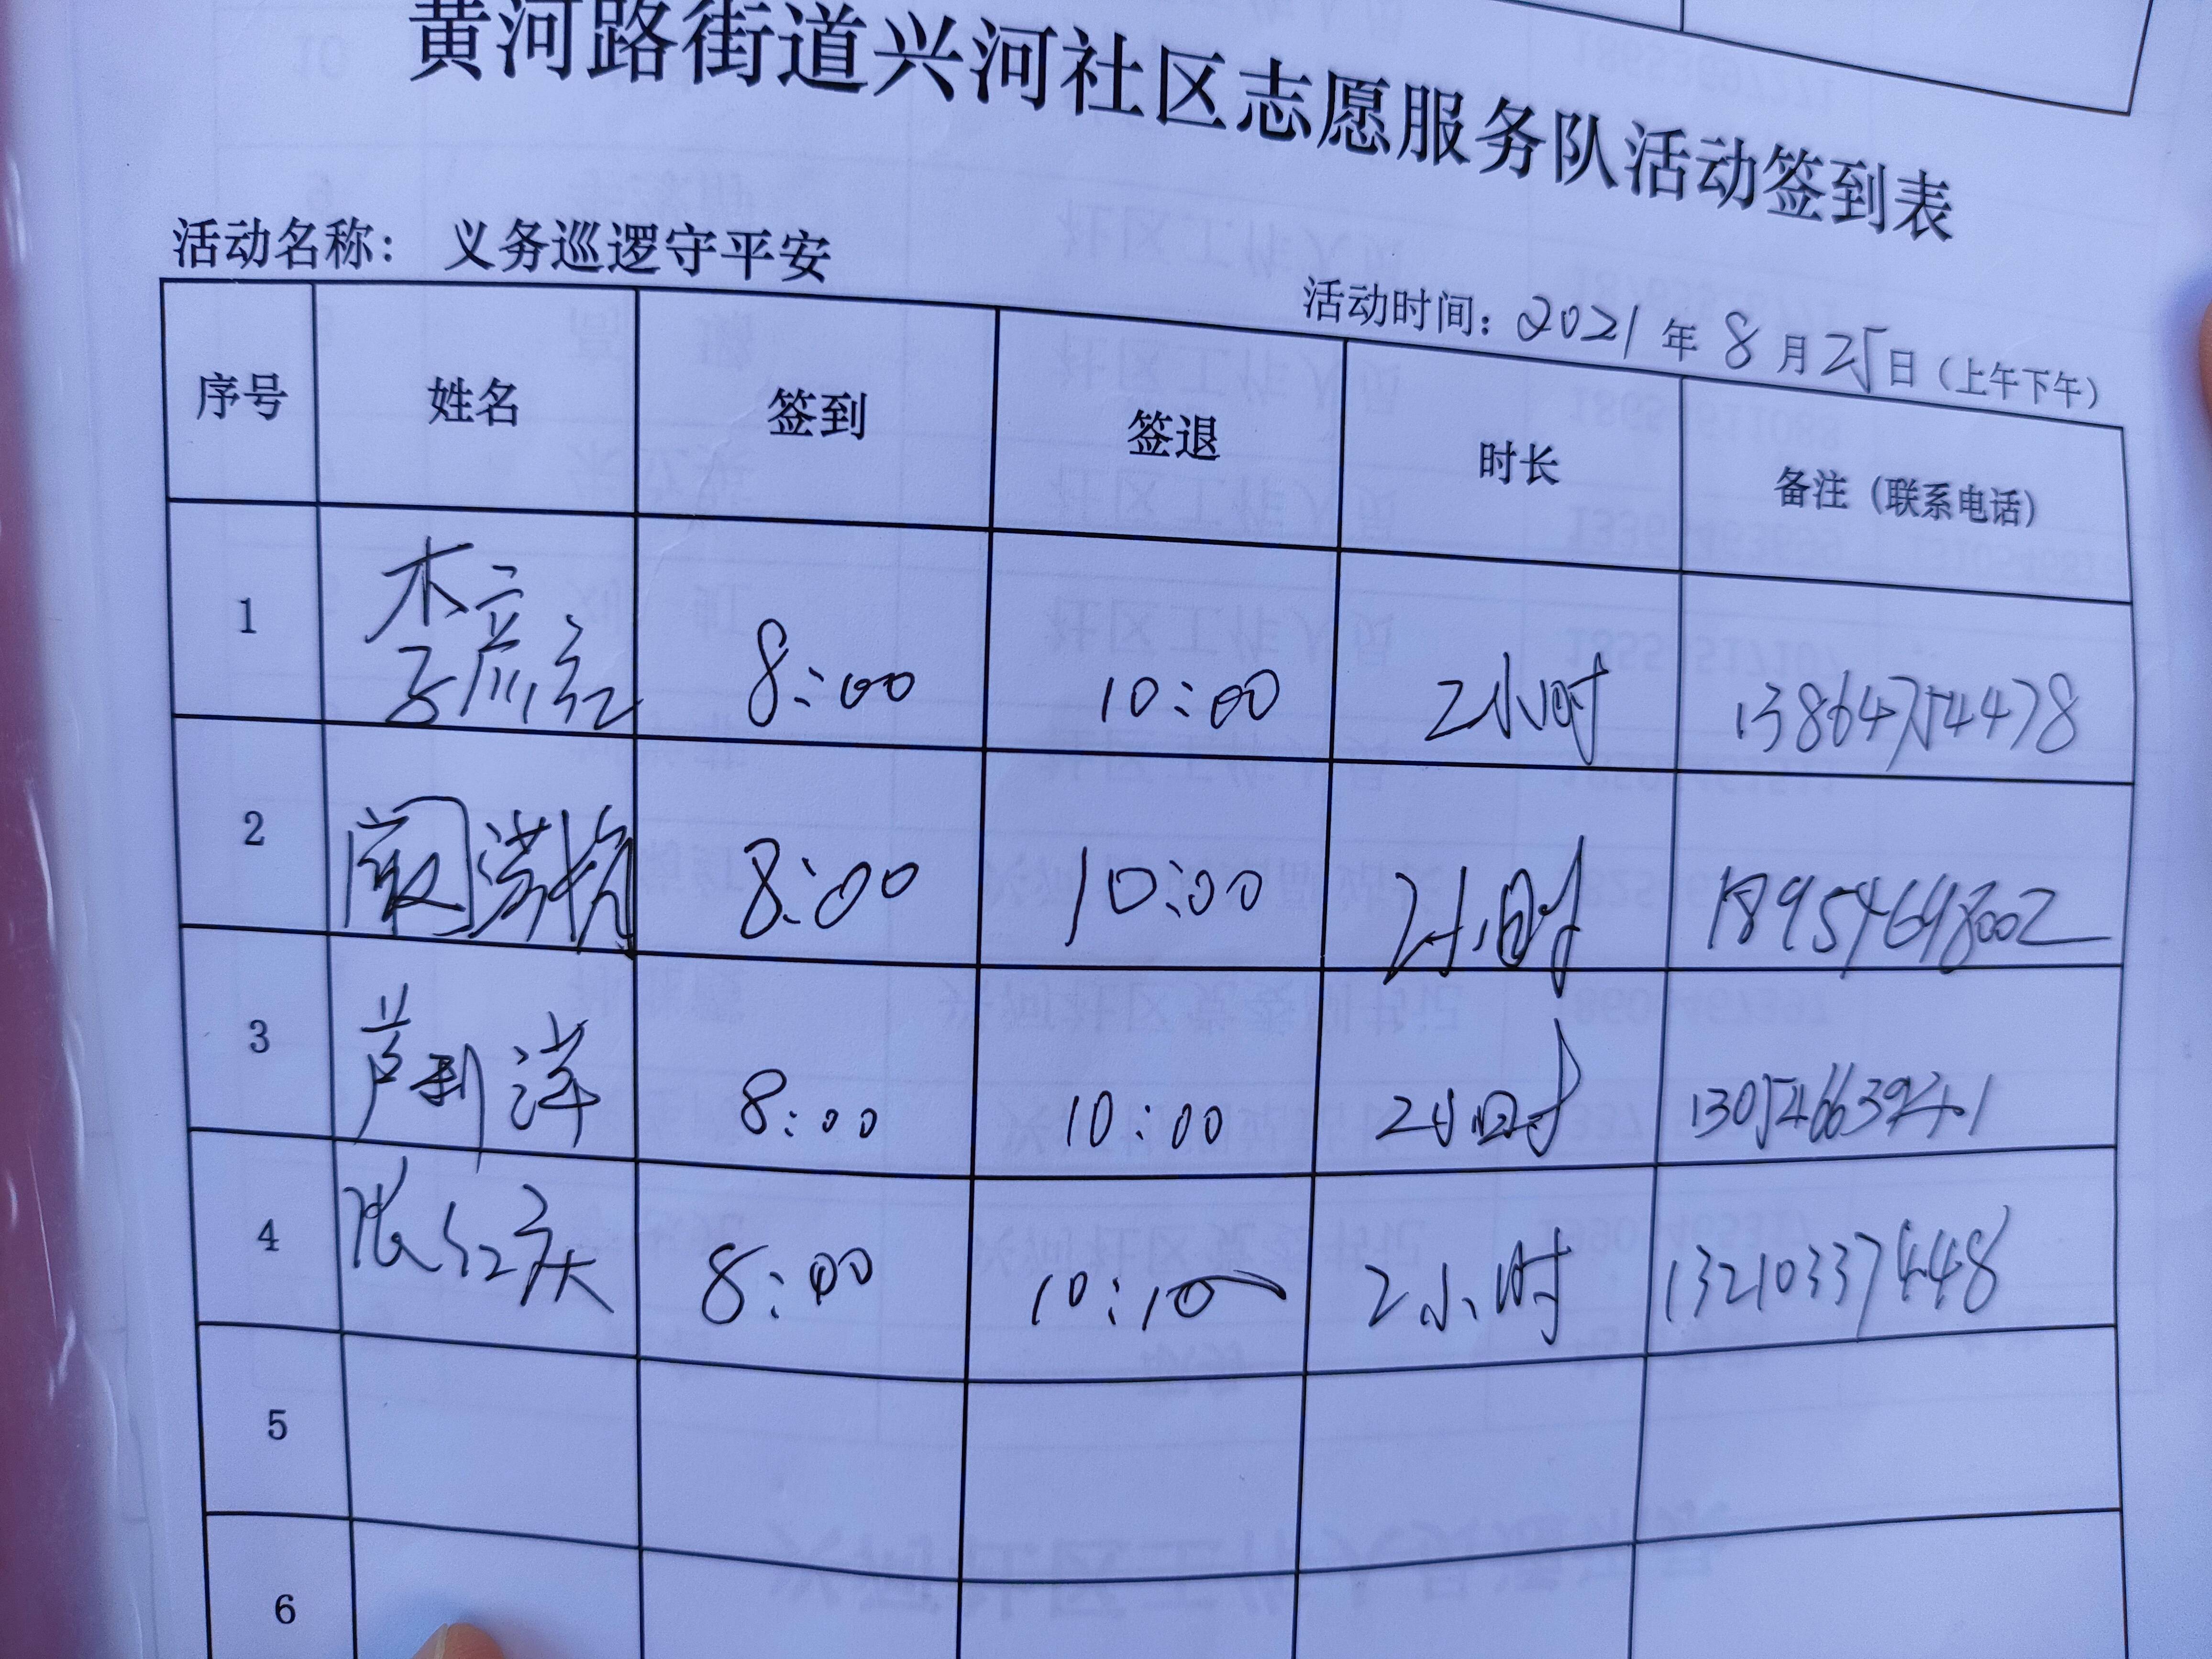 黄河路街道兴河社区志愿服务队活动签到表
活动名称： 义务巡逻守平安
活动时间：2021年8月25日（上午下午）
序号 姓名 签到 签退 时长 备注（联系电话）
1 8:00 10:00 2小时 13864754478
2 8:00 10:00 2小时 18954698002
3 8:00 10:00 2小时
4 张红庆 8:00 10:10 2小时 13210337448
5
6